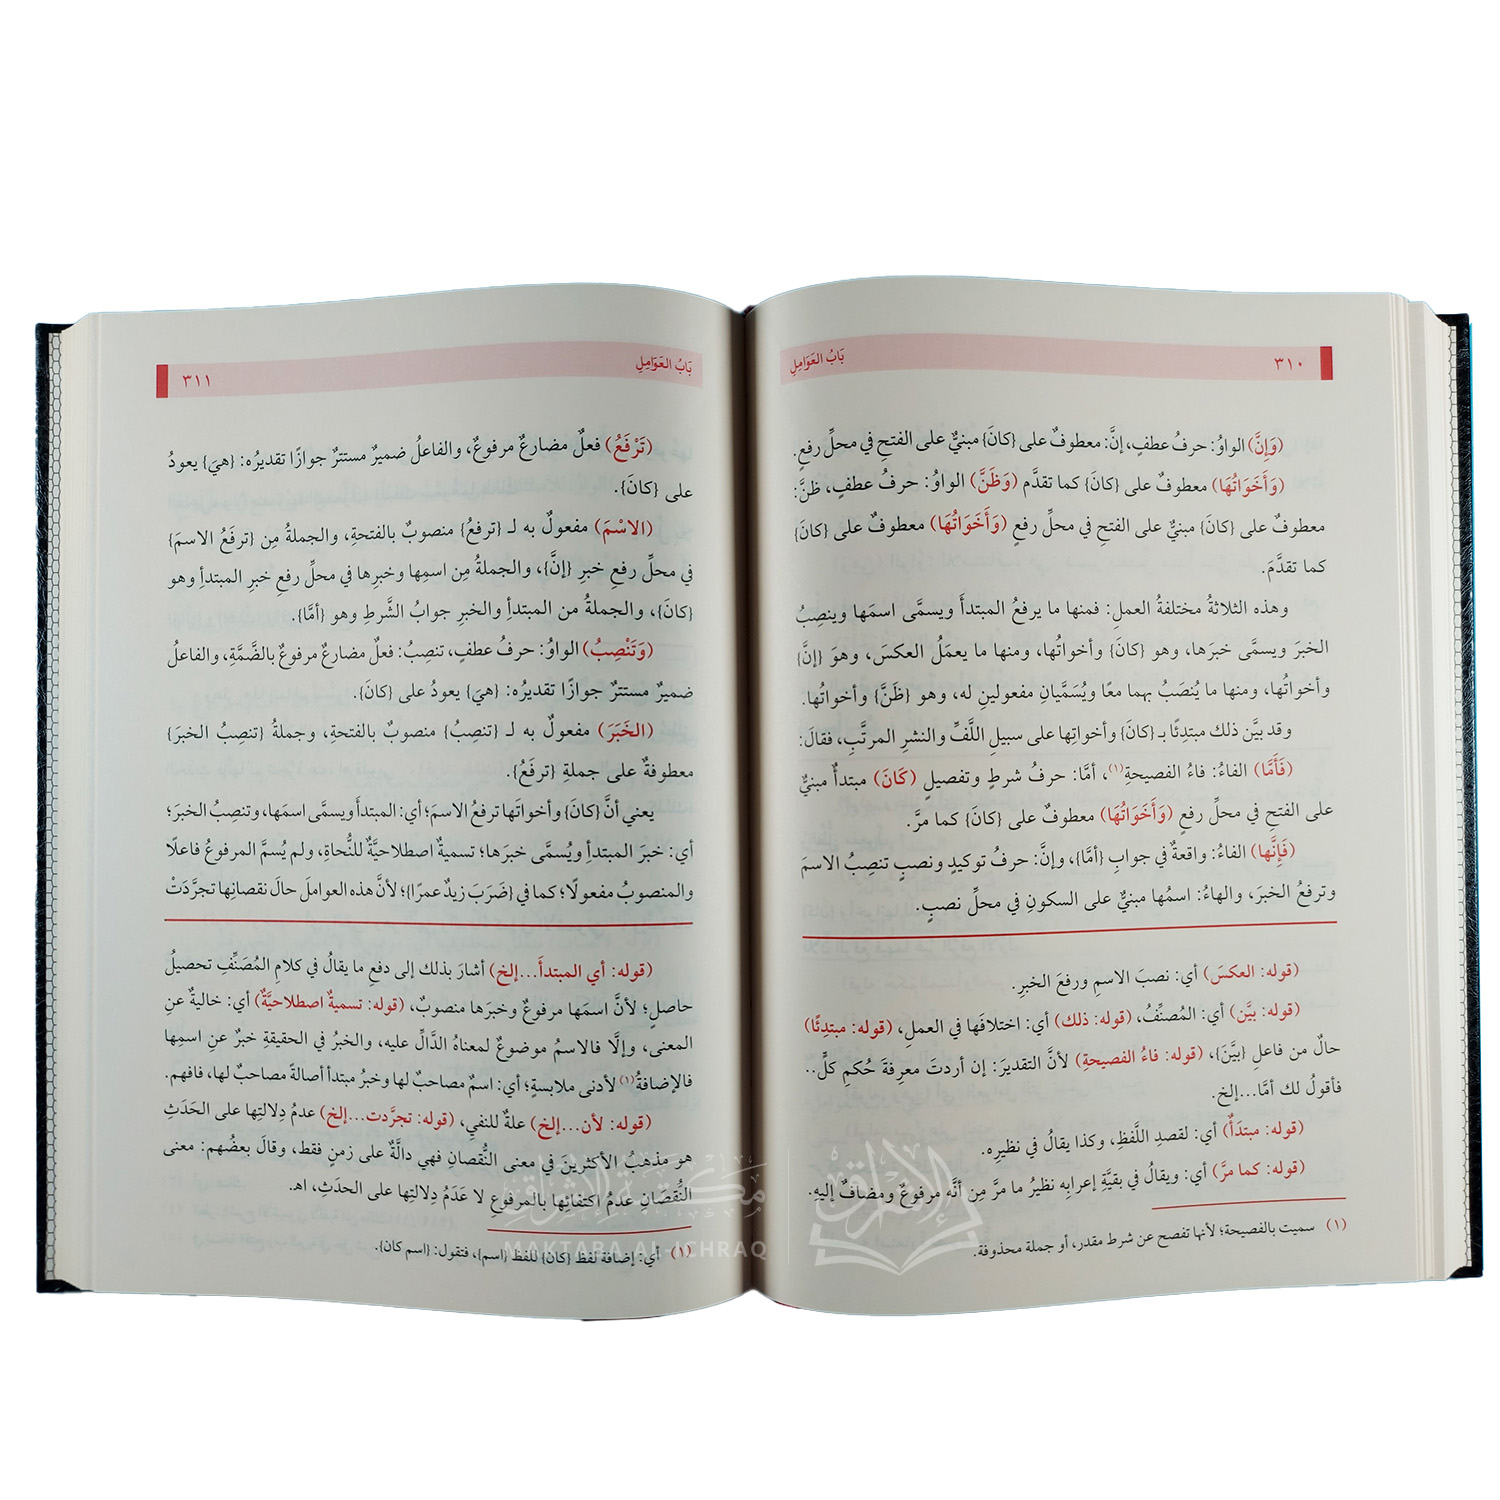 ٣١٠
بَابُ العَوَامِلِ
(وَإِنَّ) الواوُ: حرفُ عطفٍ، إنَّ: معطوفٌ على {كانَ} مبنيٌّ على الفتح في محلِّ رفعٍ.
(وَأَخَوَاتُهَا) معطوفٌ على {كانَ} كما تقدَّم (وَظَنَّ) الواوُ: حرفُ عطفٍ، ظنَّ:
معطوفٌ على {كانَ} مبنيٌّ على الفتح في محلِّ رفعٍ (وَأَخَوَاتُهَا) معطوفٌ على {كانَ}
كما تقدَّمَ.
وهذه الثلاثةُ مختلفةُ العملِ: فمنها ما يرفعُ المبتدأَ ويسمَّى اسمَها وينصِبُ
الخبرَ ويسمَّى خبرَها، وهو {كانَ} وأخواتُها، ومنها ما يعمَلُ العكسَ، وهوَ {إنَّ}
وأخواتُها، ومنها ما يُنصَبُ بهما معًا ويُسَمَّيانِ مفعولينِ له، وهو {ظَنَّ} وأخواتُها.
وقد بيَّن ذلك مبتدِئًا بـ {كانَ} وأخواتِها على سبيلِ اللَّفِّ والنشرِ المرتَّبِ، فقالَ:
(فَأَمَّا) الفاءُ: فاءُ الفصيحةِ(١)، أمَّا: حرفُ شرطٍ وتفصيلٍ (كَانَ) مبتدأٌ مبنيٌّ
على الفتحِ في محلِّ رفعٍ (وَأَخَوَاتُهَا) معطوفٌ على {كانَ} كما مرَّ.
(فَإِنَّها) الفاءُ: واقعةٌ في جوابِ {أمَّا}، وإنَّ: حرفُ توكيدٍ ونصبٍ تنصِبُ الاسمَ
وترفعُ الخبرَ، والهاءُ: اسمُها مبنيٌّ على السكونِ في محلِّ نصبٍ.
(قوله: العكسَ) أي: نصبَ الاسمِ ورفعَ الخبرِ.
(قوله: بيَّن) أي: المُصنِّفُ، (قوله: ذلك) أي: اختلافَها في العملِ، (قوله: مبتدِئًا)
حالٌ من فاعلِ {بيَّنَ}، (قوله: فاءُ الفصيحةِ) لأنَّ التقديرَ: إن أردتَ معرِفةَ حُكمِ كلٍّ..
فأقولُ لك أمَّا...إلخ.
(قوله: مبتدَأٌ) أي: لقصدِ اللَّفظِ، وكذا يقالُ في نظيرِه.
(قوله: كما مرَّ) أي: ويقالُ في بقيَّةِ إعرابِه نظيرُ ما مرَّ مِن أنَّه مرفوعٌ ومضافٌ إليهِ.
(١) سميت بالفصيحة؛ لأنها تفصح عن شرط مقدر، أو جملة محذوفة.
بَابُ العَوَامِلِ
٣١١
(تَرْفَعُ) فعلٌ مضارعٌ مرفوعٌ، والفاعلُ ضميرٌ مستترٌ جوازًا تقديرُه: {هيَ} يعودُ
على {كانَ}.
(الاسْمَ) مفعولٌ به لـ {ترفعُ} منصوبٌ بالفتحةِ، والجملةُ مِن {ترفَعُ الاسمَ}
في محلِّ رفعٍ خبرِ {إنَّ}، والجملةُ مِن اسمِها وخبرِها في محلِّ رفعٍ خبرِ المبتدأِ وهو
{كانَ}، والجملةُ من المبتدأِ والخبرِ جوابُ الشَّرطِ وهو {أمَّا}.
(وَتَنْصِبُ) الواوُ: حرفُ عطفٍ، تنصِبُ: فعلٌ مضارعٌ مرفوعٌ بالضَّمَّةِ، والفاعلُ
ضميرٌ مستترٌ جوازًا تقديرُه: {هيَ} يعودُ على {كانَ}.
(الخَبَرَ) مفعولٌ به لـ {تنصِبُ} منصوبٌ بالفتحةِ، وجملةُ {تنصِبُ الخبرَ}
معطوفةٌ على جملةِ {ترفَعُ}.
يعني أنَّ {كانَ} وأخواتَها ترفعُ الاسمَ؛ أي: المبتدأَ ويسمى اسمَها، وتنصِبُ الخبرَ؛
أي: خبرَ المبتدأِ ويُسمَّى خبرَها؛ تسميةٌ اصطلاحيَّةٌ للنُّحاةِ، ولم يُسمَّ المرفوعُ فاعلًا
والمنصوبُ مفعولًا؛ كما في {ضَرَبَ زيدٌ عمرًا}؛ لأنَّ هذه العواملَ حالَ نقصانِها تجرَّدَتْ
(قوله: أي المبتدأَ...إلخ) أشارَ بذلك إلى دفعِ ما يقالُ في كلامِ المُصَنِّفِ تحصيلُ
حاصلٍ؛ لأنَّ اسمَها مرفوعٌ وخبرَها منصوبٌ، (قوله: تسميةٌ اصطلاحيَّةٌ) أي: خاليةٌ عنِ
المعنى، وإلَّا فالاسمُ موضوعٌ لمعناهُ الدَّالِّ عليه، والخبرُ في الحقيقةِ خبرٌ عنِ اسمِها
فالإضافةُ(١) لأدنى ملابسةٍ؛ أي: اسمٌ مصاحبٌ لها وخبرُ مبتدأ أصالةً مصاحبٌ لها، فافهم.
(قوله: لأن...إلخ) علةٌ للنفيِ، (قوله: تجرَّدت...إلخ) عدمُ دِلالتِها على الحَدَثِ
هو مذهبُ الأكثرينَ في معنى النُّقصانِ فهي دالَّةٌ على زمنٍ فقط، وقالَ بعضُهم: معنى
النُّقصَانِ عدمُ اكتفائِها بالمرفوعِ لا عَدَمُ دِلالتِها على الحدَثِ، اهـ.
(١) أي: إضافة لفظ {كان} للفظ {اسم}، فتقول: {اسم كان}.
مكتبة الإشراق
MAKTABA AL-ICHRAQ
الإشراق